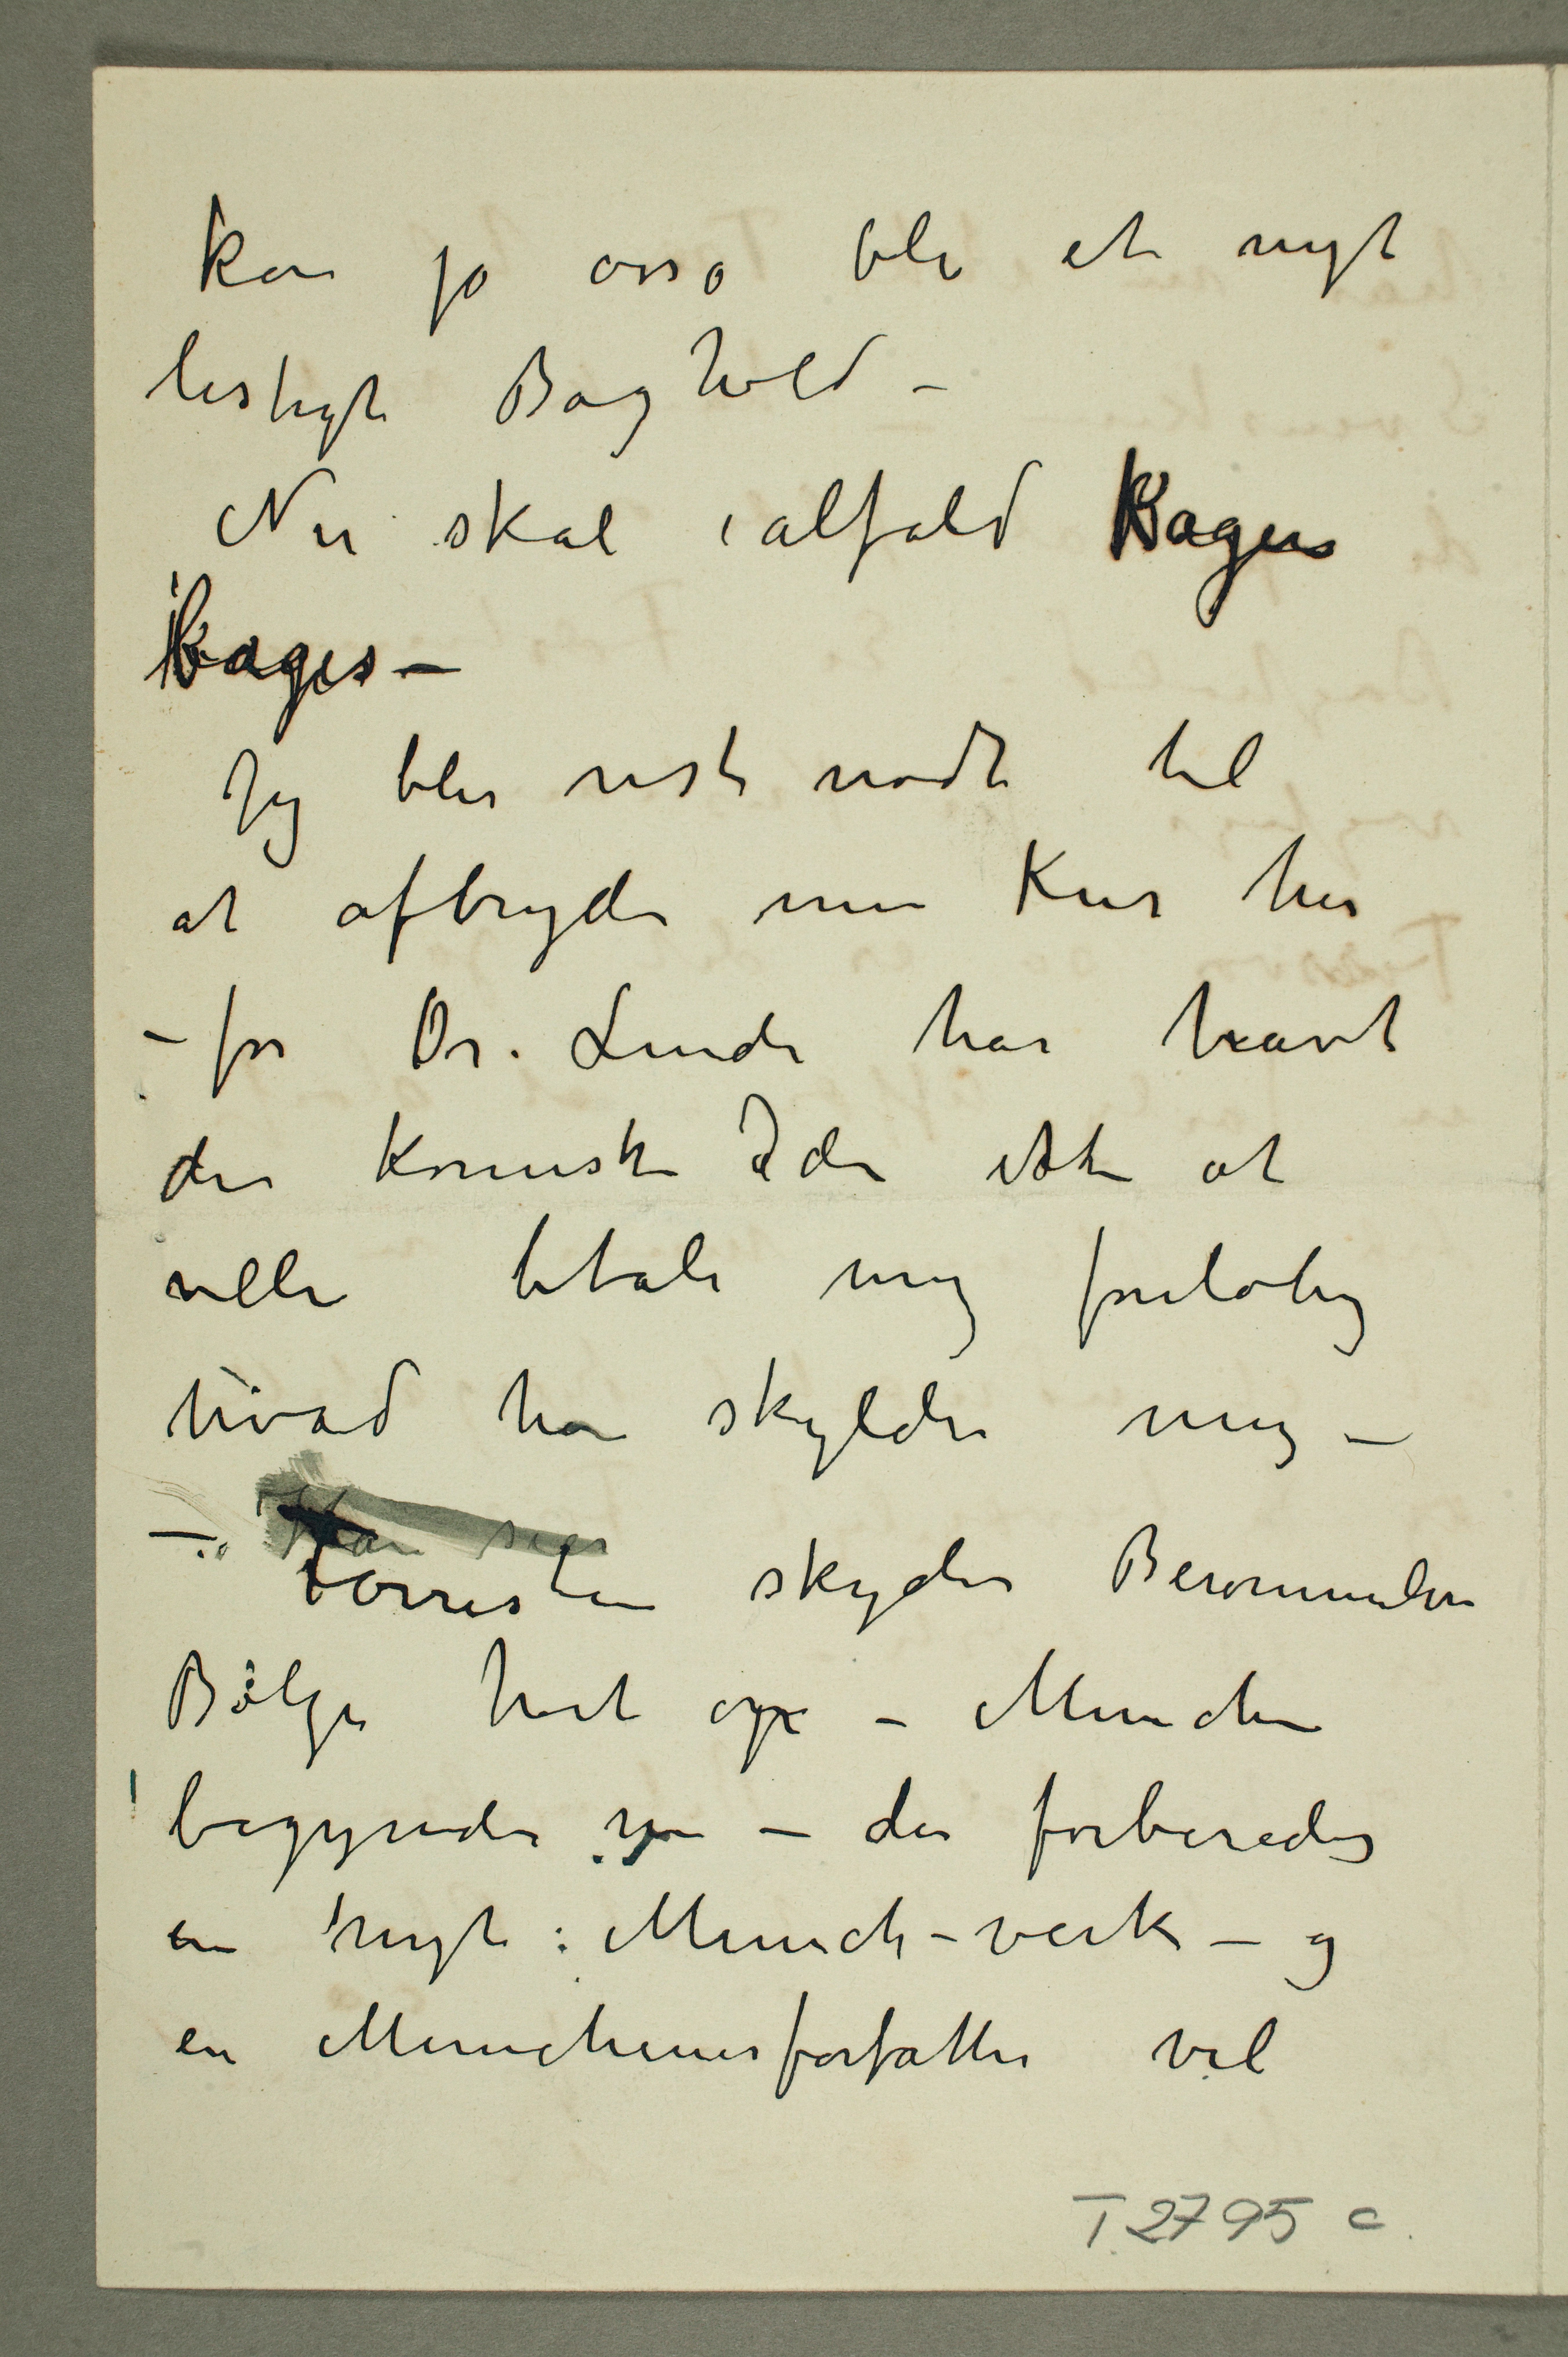 kan jo osså bli et nyt
listigt Baghold –
Nu skal ialfald Kagen
bages –
Jeg blir nist nødt til
at afbryde min Kur her
– for Dr. Linde har havt
den komiske Ide ikke at
ville betale mig foreløbig
hvad han skylder mig –
– Han siger
Forresten skyder Berømmelsen
Bølge høit op – München
begynder nu – der forberedes
en nyt Munch-verk – og
en Münchenerforfatter vil
T 2795 c.